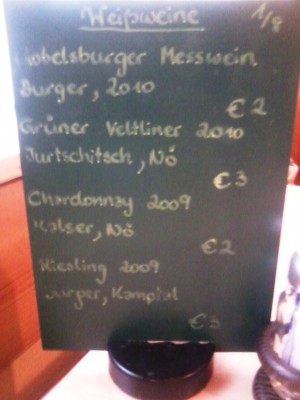 Weißweine 1/8
Gobelsburger Messwein
Burger, 2010
€ 2
Grüner Veltliner 2010
Jurtschitsch, NÖ
€ 3
Chardonnay 2009
NÖ
€ 2
Riesling 2009
Kamptal
€ 3